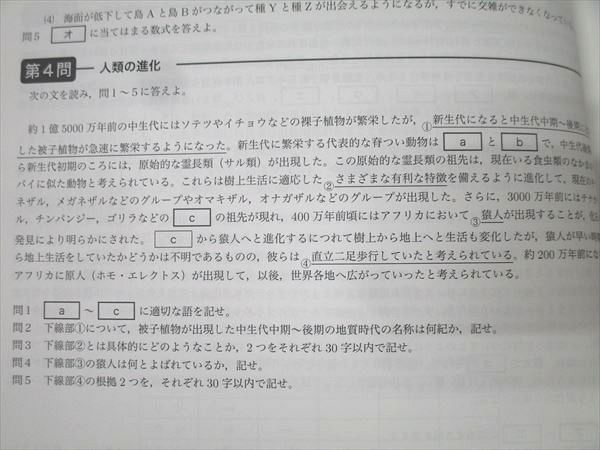 (4) 海面が低下して島Aと島Bがつながって種Yと種Zが出会えるようになるが,すでに交雑ができなくなってい
問5 オ に当てはまる数式を答えよ。
第4問 人類の進化
次の文を読み,問1〜5に答えよ。
約1億5000万年前の中生代にはソテツやイチョウなどの裸子植物が繁栄したが,①新生代になると中生代中期〜後期に
した被子植物が急速に繁栄するようになった。新生代に繁栄する代表的な脊つい動物は a と b で,中生代
ら新生代初期のころには,原始的な霊長類(サル類)が出現した。この原始的な霊長類の祖先は,現在いる食虫類のなか
パイに似た動物と考えられている。これらは樹上生活に適応した②さまざまな有利な特徴を備えるように進化して,現在の
ネザル,メガネザルなどのグループやオマキザル,オナガザルなどのグループが出現した。さらに,3000万年前にはテナ
ル,チンパンジー,ゴリラなどの c の祖先が現れ,400万年前頃にはアフリカにおいて③猿人が出現することが,化
発見により明らかにされた。 c から猿人へと進化するにつれて樹上から地上へと生活も変化したが,猿人が早い時
ら地上生活をしていたかどうかは不明であるものの,彼らは④直立二足歩行していたと考えられている。約200万年前に
アフリカに原人(ホモ・エレクトス)が出現して,以後,世界各地へ広がっていったと考えられている。
問1 a 〜 c に適切な語を記せ。
問2 下線部①について,被子植物が出現した中生代中期〜後期の地質時代の名称は何紀か,記せ。
問3 下線部②とは具体的にどのようなことか,2つをそれぞれ30字以内で記せ。
問4 下線部③の猿人は何とよばれているか,記せ。
問5 下線部④の根拠2つを,それぞれ30字以内で記せ。